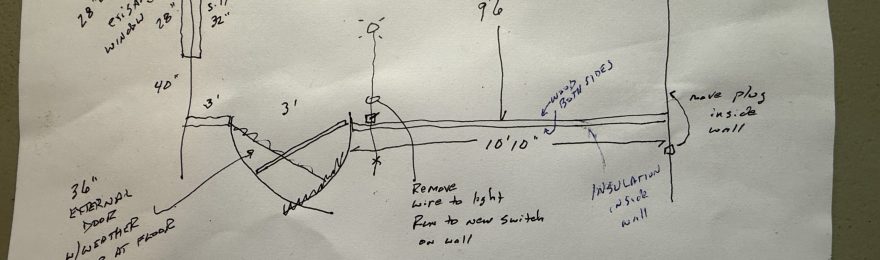 28"
EXISTING
WINDOW
28"
SILL
32"
9'6
40"
3'
3'
WOOD
BOTH SIDES
move plug
inside
wall
10'10"
36"
EXTERNAL
DOOR
W/WEATHER
AT FLOOR
Remove
wire to light
Run to new switch
on wall
INSULATION
inside
wall